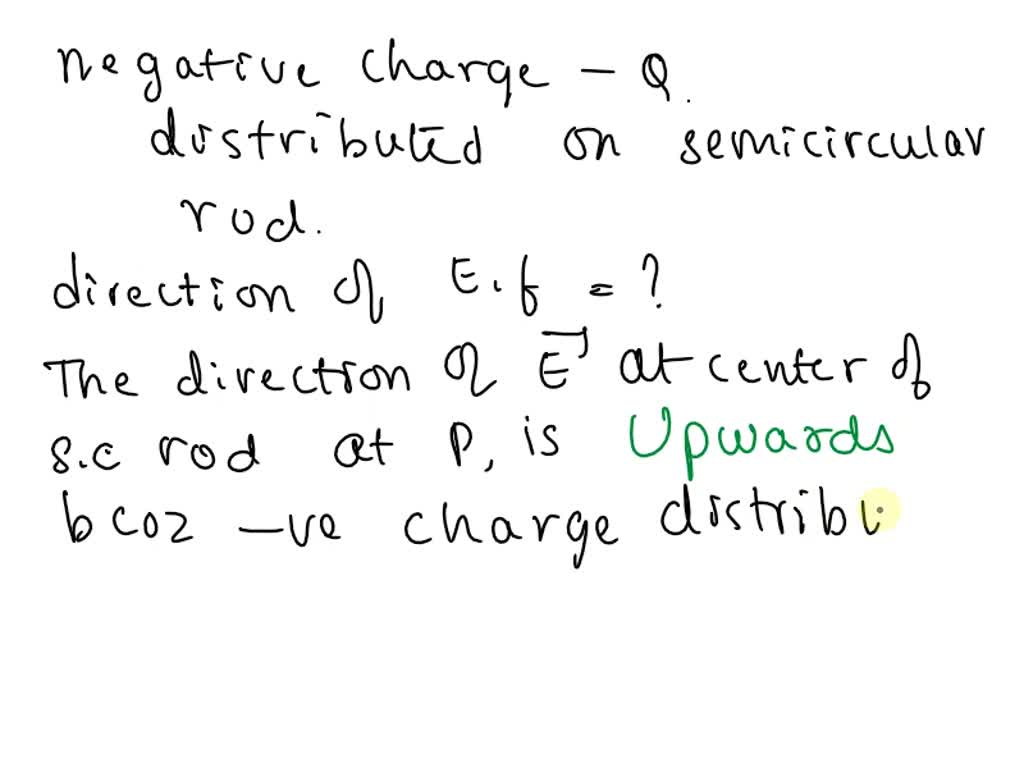 negative charge - Q.
distributed on semicircular
rod.
direction of E.f = ?
The direction of E⃗ at center of
s.c rod at P, is Upwards
bcoz -ve charge distribu